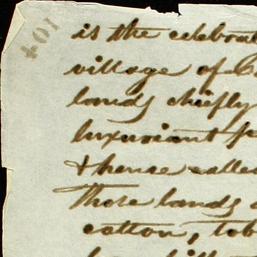 104
is the celebrat
village of C
lands chiefly
luxuriant f
& hence calle
Those lands
cotton, tob